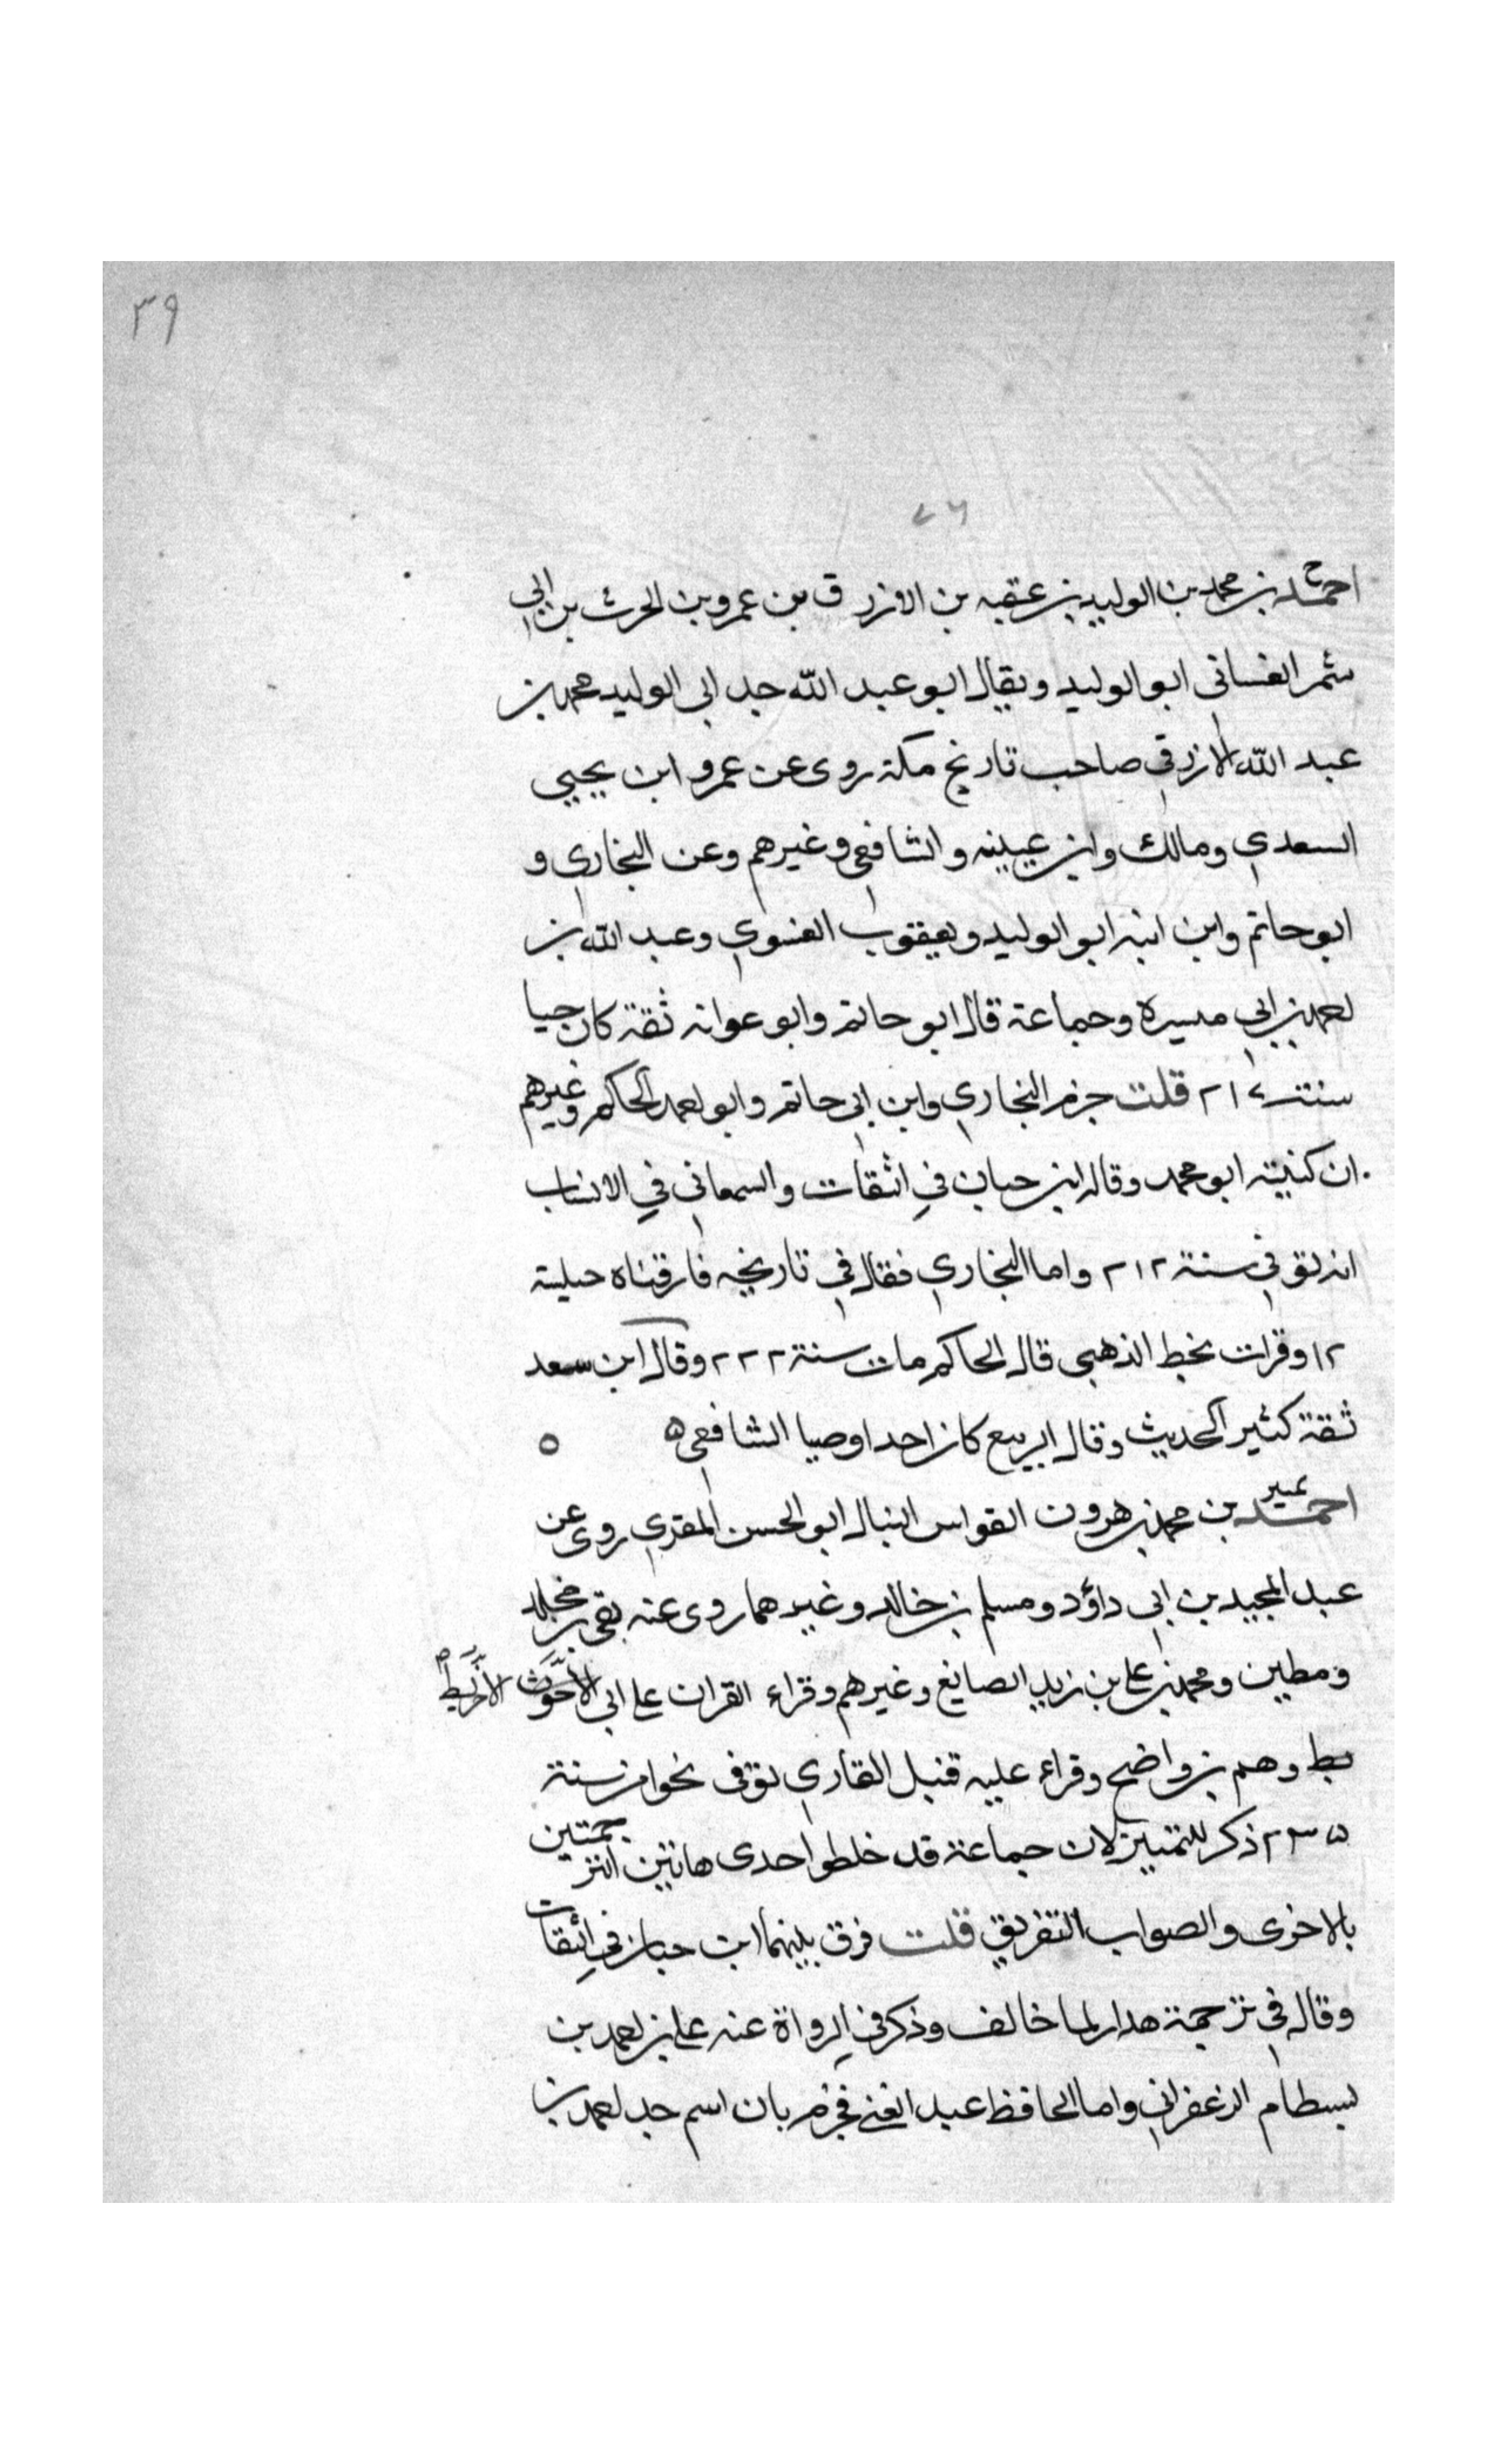 ٣٩
٧٦
خ
احمد بن محمد بن الوليد بن عقبه بن الازرق بن عمرو بن الحرث بن ابي
شمر الغساني ابو الوليد ويقال ابو عبد الله جد ابي الوليد محمد بن
عبد الله الازرقي صاحب تاريخ مكة روى عن عمرو ابن يحيي
السعدي ومالك وابن عيينه والشافعي وغيرهم وعن البخاري و
ابو حاتم وابن ابنه ابو الوليد ويعقوب الفسوي وعبد الله بن
احمد بن ابي ميسرة وجماعة قال ابو حاتم وابو عوانه ثقة كان حيا
سنة ٢١٧ قلت جزم البخاري وابن ابي حاتم وابو احمد الحاكم وغيرهم
ان كنيته ابو محمد وقال ابن حبان في الثقات والسمعاني في الانساب
انه توفي سنة ٢١٢ واما البخاري فقال في تاريخه فارقناه حيا سنة
١٢ وقرات بخط الذهبي قال الحاكم مات سنة ٢٢٢ وقال ابن سعد
ثقة كثير الحديث وقال الربيع كان احد اوصيا الشافعي ٥ ٥
تمييز
احمد بن محمد بن هرون القواس النبال ابو الحسن المقري روى عن
عبد المجيد بن ابي داؤد ومسلم بن خالد وغيرهما روى عنه بقي بن مخلد
ومطين ومحمد بن علي بن زيد الصايغ وغيرهم وقراء القران على ابي الاخريط
وهب بن واضح وقراء عليه قنبل القاري توفى نحوا من سنة
٢٣٥ ذكر للتمييز لان جماعة قد خلطوا احدى هاتين الترجمتين
بالاخرى والصواب التفريق قلت فرق بينهما ابن حبان في الثقات
وقال في ترجمة هذا ربما خالف وذكر في الرواة عنه علي بن احمد بن
بسطام الزعفراني واما الحافظ عبد الغني فجزم بان اسم جد احمد بن